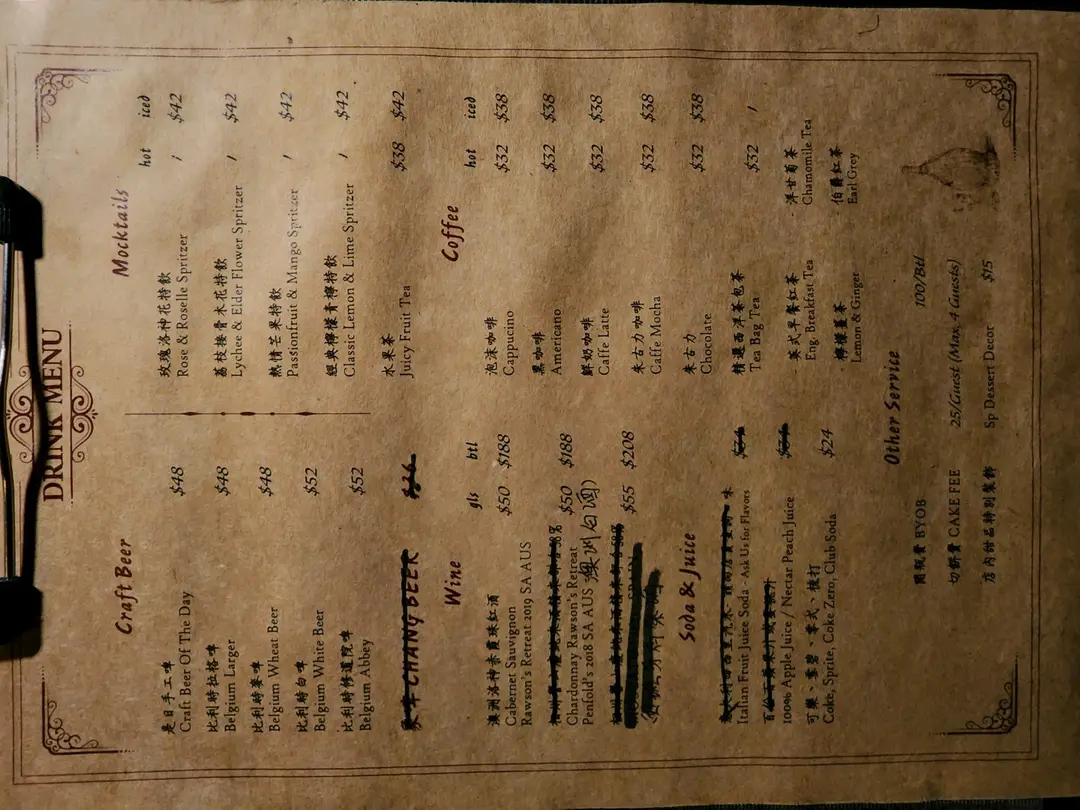 DRINK MENU
Craft Beer
是日手工啤
Craft Beer Of The Day $48
比利時拉格啤
Belgium Larger $48
比利時麥啤
Belgium Wheat Beer $48
比利時白啤
Belgium White Beer $52
比利時修道院啤
Belgium Abbey $52
CHANG BEER
Wine gls btl
澳洲洛神赤霞珠紅酒
Cabernet Sauvignon $50 $188
Rawson's Retreat 2019 SA AUS
Chardonnay Rawson's Retreat $50 $188
Penfold's 2018 SA AUS 澳洲白酒)
$55 $208
Soda & Juice
Italian Fruit Juice Soda - Ask Us for Flavors
100% Apple Juice / Nectar Peach Juice
可樂、雪碧、零式、梳打 $24
Coke, Sprite, Coke Zero, Club Soda
Mocktails
hot iced
玫瑰洛神花特飲 / $42
Rose & Roselle Spritzer
荔枝接骨木花特飲 / $42
Lychee & Elder Flower Spritzer
熱情芒果特飲 / $42
Passionfruit & Mango Spritzer
經典檸檬青檸特飲 / $42
Classic Lemon & Lime Spritzer
水果茶 $38 $42
Juicy Fruit Tea
Coffee
hot iced
泡沫咖啡 $32 $38
Cappucino
黑咖啡 $32 $38
Americano
鮮奶咖啡 $32 $38
Caffe Latte
朱古力咖啡 $32 $38
Caffe Mocha
朱古力 $32 $38
Chocolate
精選西洋茶包茶 $32 /
Tea Bag Tea
- 英式早餐紅茶 - 洋甘菊茶
Eng. Breakfast Tea Chamomile Tea
- 檸檬薑茶 - 伯爵紅茶
Lemon & Ginger Earl Grey
Other Service
開瓶費 BYOB 100/Btl
切餅費 CAKE FEE 25/Guest (Max. 4 Guests)
店內甜品特別裝飾 Sp Dessert Decor $15